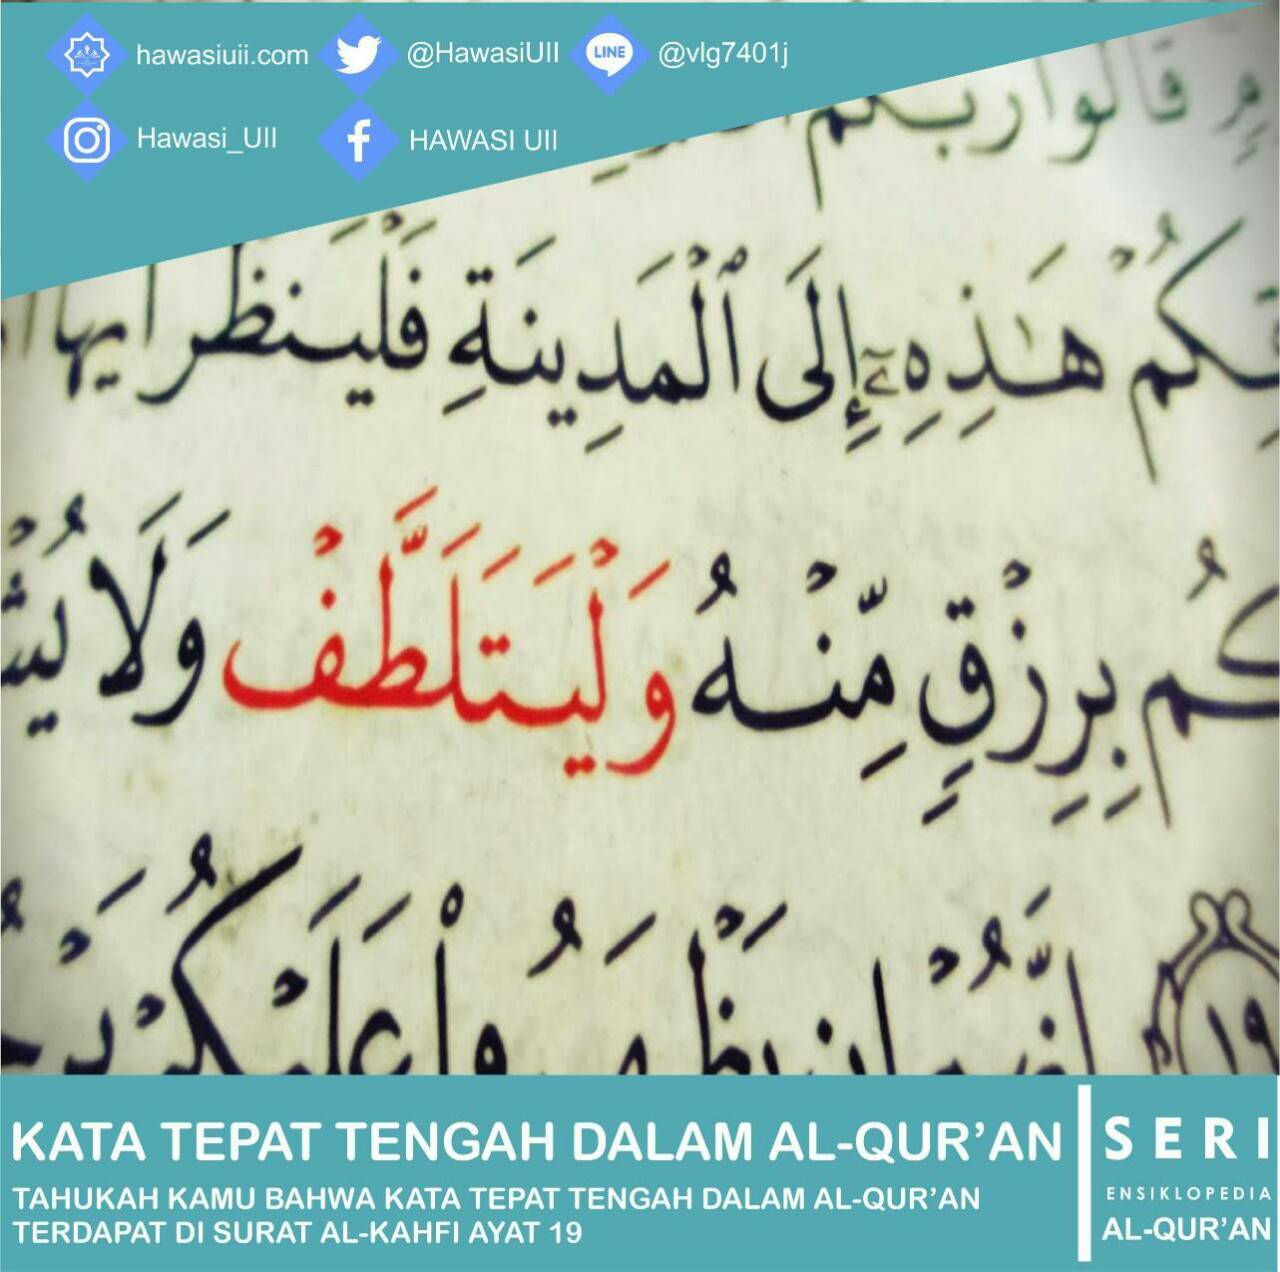 hawasiuii.com @HawasiUII LINE @vlg7401j
Hawasi_UII HAWASI UII
قَالُوا رَبُّكُمْ
هَٰذِهِۦٓ إِلَى ٱلْمَدِينَةِ فَلْيَنظُرْ أَيُّهَا
بِرِزْقٍ مِّنْهُ وَلْيَتَلَطَّفْ وَلَا
١٩ إِنَّهُمْ إِن يَظْهَرُوا۟ عَلَيْكُمْ
KATA TEPAT TENGAH DALAM AL-QUR’AN
TAHUKAH KAMU BAHWA KATA TEPAT TENGAH DALAM AL-QUR’AN
TERDAPAT DI SURAT AL-KAHFI AYAT 19
SERI
ENSIKLOPEDIA
AL-QUR’AN